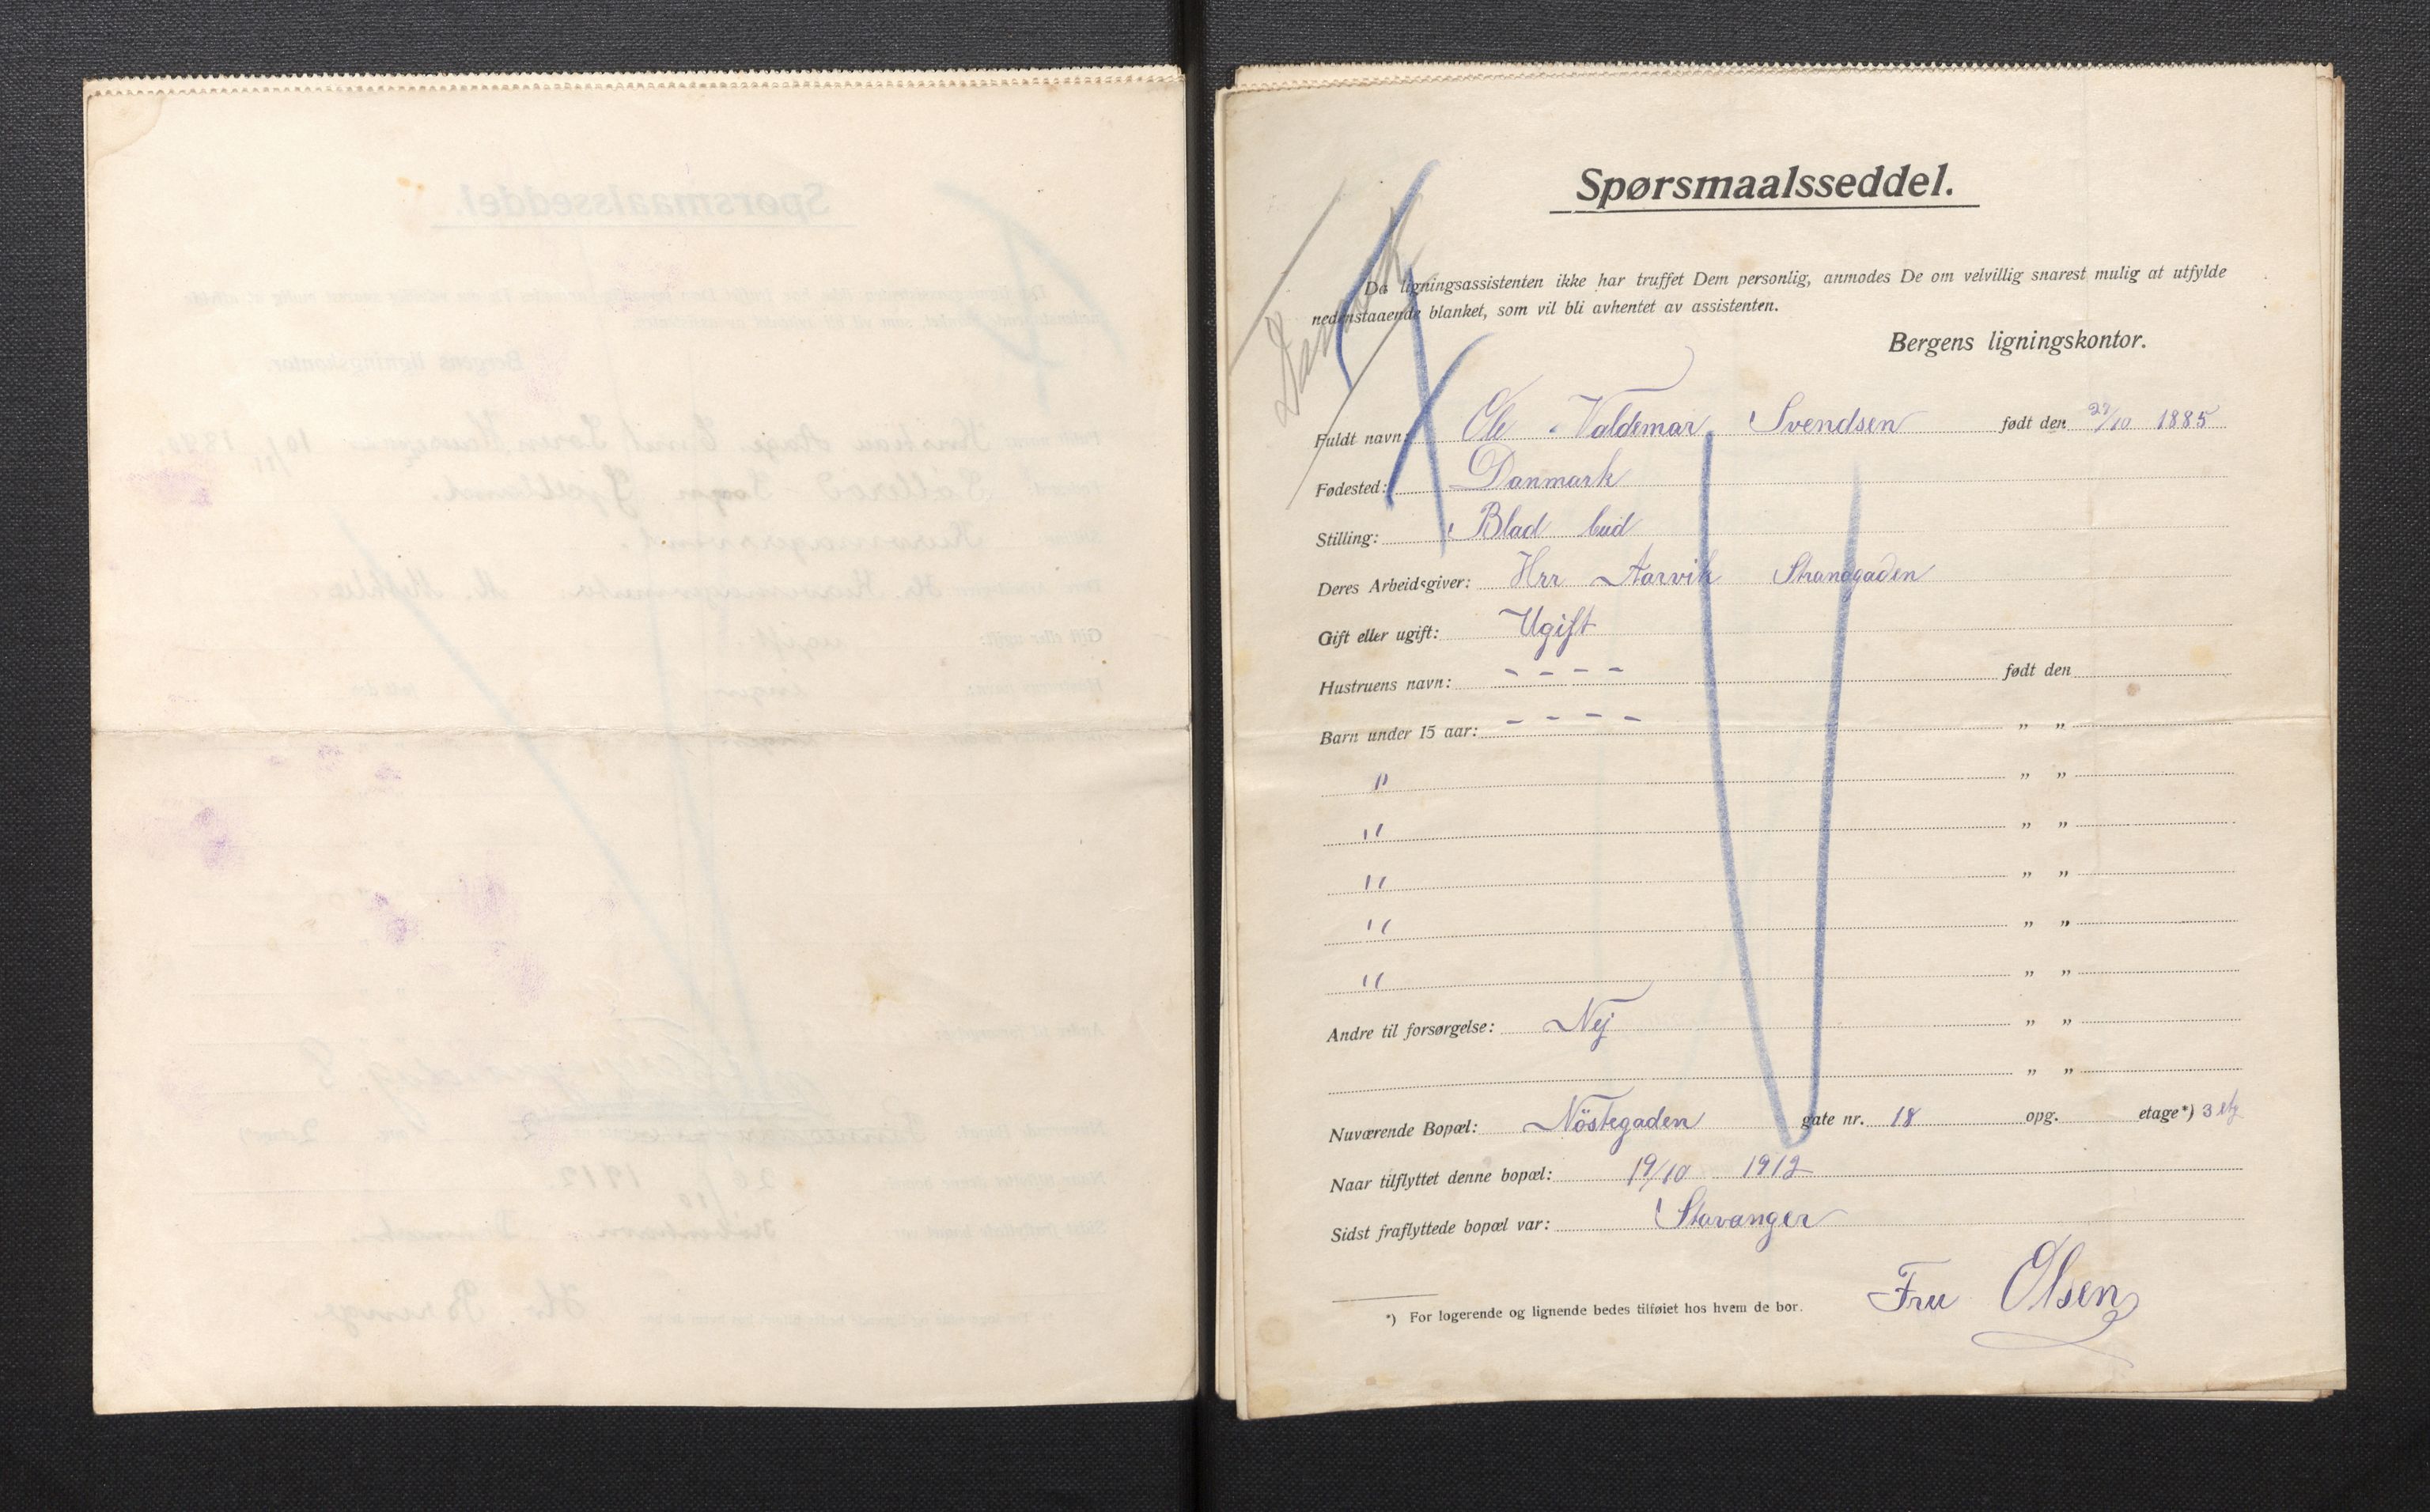 Spørsmaalsseddel.
Danmark
Da ligningsassistenten ikke har truffet Dem personlig, anmodes De om velvillig snarest mulig at utfylde
nedenstaaende blanket, som vil bli avhentet av assistenten.
Bergens ligningskontor.
Fuldt navn: Ole Valdemar Svendsen født den 29/10 1885
Fødested: Danmark
Stilling: Blad bud
Deres Arbeidsgiver: Hrr Aarvik Strandgaden
Gift eller ugift: Ugift
Hustruens navn: - - - - født den
Barn under 15 aar: - - - - " "
" " "
" " "
" " "
" " "
" " "
Andre til forsørgelse: Nej " "
" "
Nuværende Bopæl: Nöstegaden gate nr. 18 opg. etage*) 3 etg
Naar tilflyttet denne bopæl: 19/10 1912
Sidst fraflyttede bopæl var: Stavanger
*) For logerende og lignende bedes tilføiet hos hvem de bor. Fru Olsen